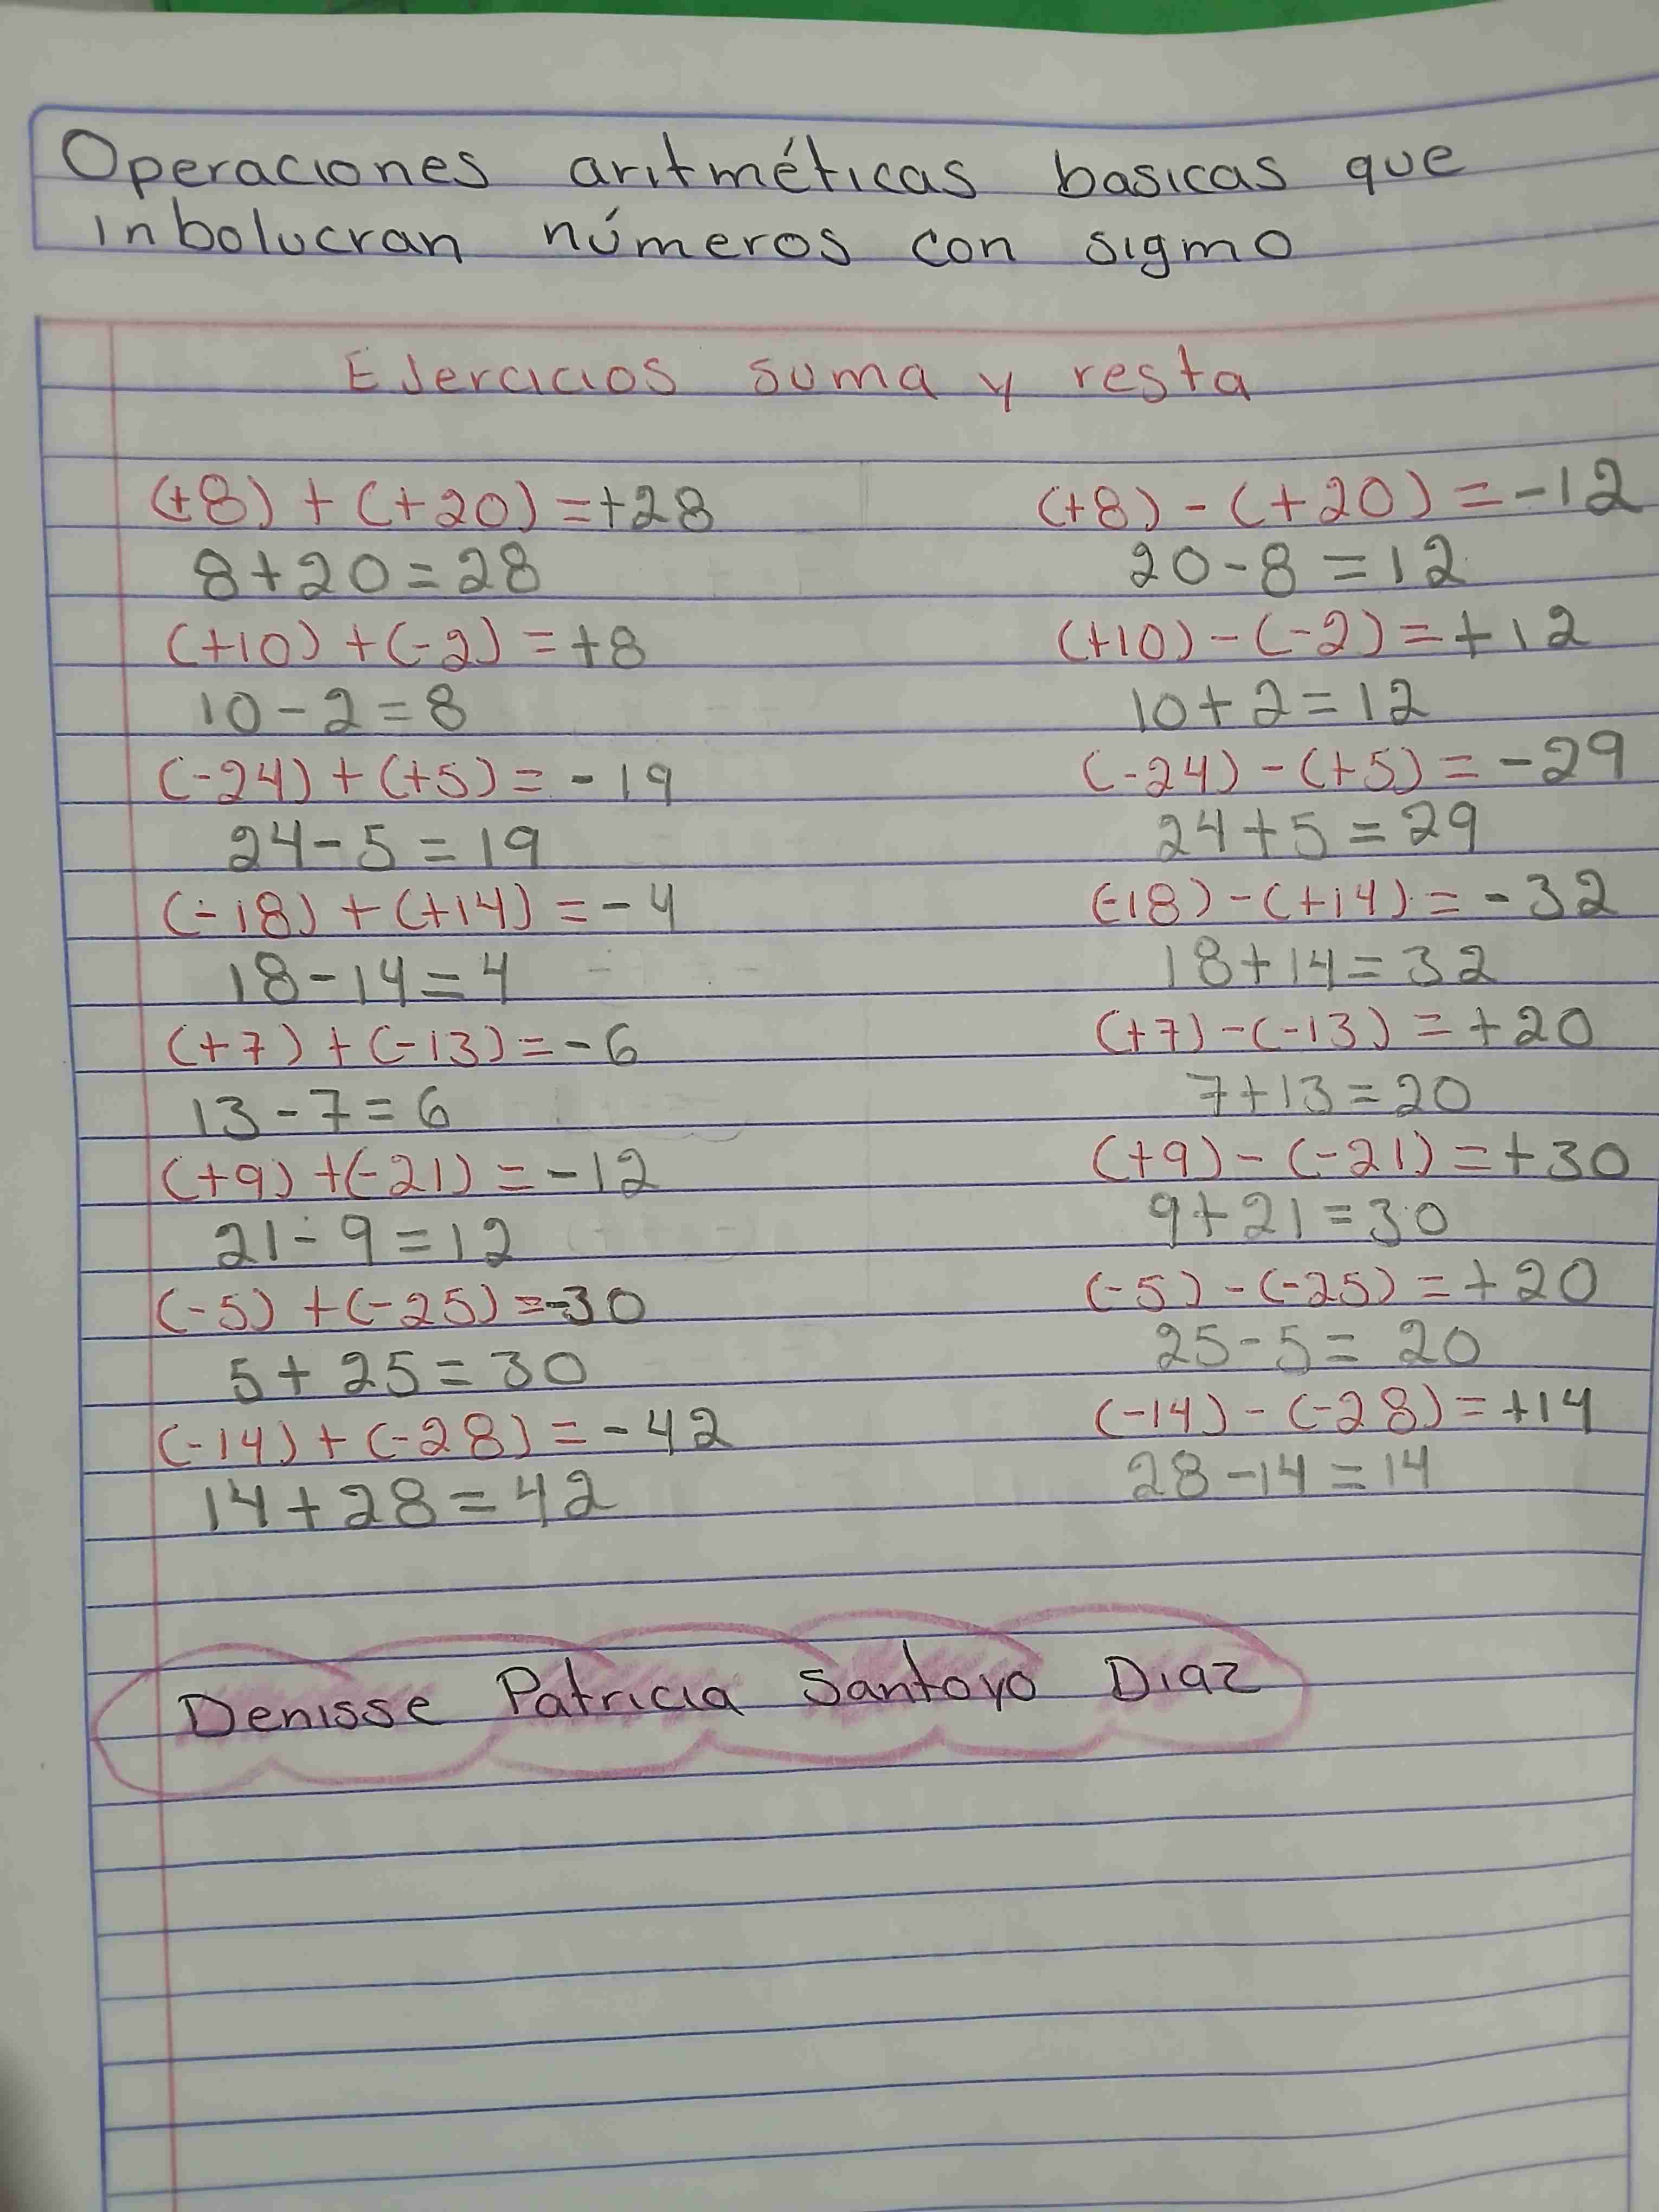 Operaciones aritméticas basicas que
inbolucran números con sigmo
Ejercicios suma y resta
(+8) + (+20) = +28
8 + 20 = 28
(+10) + (-2) = +8
10 - 2 = 8
(-24) + (+5) = -19
24 - 5 = 19
(-18) + (+14) = -4
18 - 14 = 4
(+7) + (-13) = -6
13 - 7 = 6
(+9) + (-21) = -12
21 - 9 = 12
(-5) + (-25) = -30
5 + 25 = 30
(-14) + (-28) = -42
14 + 28 = 42
(+8) - (+20) = -12
20 - 8 = 12
(+10) - (-2) = +12
10 + 2 = 12
(-24) - (+5) = -29
24 + 5 = 29
(-18) - (+14) = -32
18 + 14 = 32
(+7) - (-13) = +20
7 + 13 = 20
(+9) - (-21) = +30
9 + 21 = 30
(-5) - (-25) = +20
25 - 5 = 20
(-14) - (-28) = +14
28 - 14 = 14
Denisse Patricia Santoyo Diaz